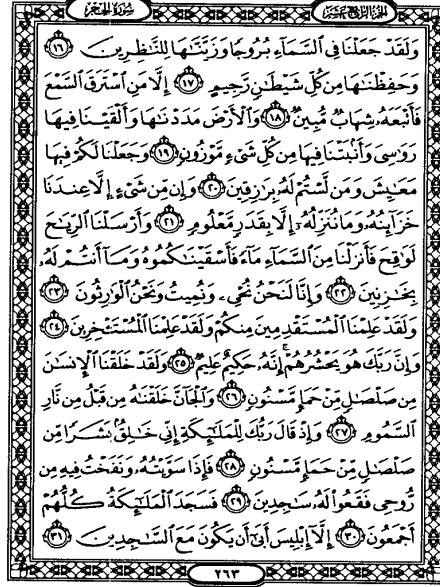 الجزء الرابع عشر سورة الحجر
وَلَقَدْ جَعَلْنَا فِي السَّمَآءِ بُرُوجًا وَزَيَّنَّٰهَا لِلنَّٰظِرِينَ ﴿١٦﴾
وَحَفِظْنَٰهَا مِن كُلِّ شَيْطَٰنٍ رَّجِيمٍ ﴿١٧﴾ إِلَّا مَنِ اسْتَرَقَ السَّمْعَ
فَأَتْبَعَهُۥ شِهَابٌ مُّبِينٌ ﴿١٨﴾ وَالْأَرْضَ مَدَدْنَٰهَا وَأَلْقَيْنَا فِيهَا
رَوَٰسِيَ وَأَنۢبَتْنَا فِيهَا مِن كُلِّ شَيْءٍ مَّوْزُونٍ ﴿١٩﴾ وَجَعَلْنَا لَكُمْ فِيهَا
مَعَٰيِشَ وَمَن لَّسْتُمْ لَهُۥ بِرَٰزِقِينَ ﴿٢٠﴾ وَإِن مِّن شَيْءٍ إِلَّا عِندَنَا
خَزَآئِنُهُۥ وَمَا نُنَزِّلُهُۥٓ إِلَّا بِقَدَرٍ مَّعْلُومٍ ﴿٢١﴾ وَأَرْسَلْنَا الرِّيَٰحَ
لَوَٰقِحَ فَأَنزَلْنَا مِنَ السَّمَآءِ مَآءً فَأَسْقَيْنَٰكُمُوهُ وَمَآ أَنتُمْ لَهُۥ
بِخَٰزِنِينَ ﴿٢٢﴾ وَإِنَّا لَنَحْنُ نُحْيِۦ وَنُمِيتُ وَنَحْنُ الْوَٰرِثُونَ ﴿٢٣﴾
وَلَقَدْ عَلِمْنَا الْمُسْتَقْدِمِينَ مِنكُمْ وَلَقَدْ عَلِمْنَا الْمُسْتَـْٔخِرِينَ ﴿٢٤﴾
وَإِنَّ رَبَّكَ هُوَ يَحْشُرُهُمْ ۚ إِنَّهُۥ حَكِيمٌ عَلِيمٌ ﴿٢٥﴾ وَلَقَدْ خَلَقْنَا الْإِنسَٰنَ
مِن صَلْصَٰلٍ مِّنْ حَمَإٍ مَّسْنُونٍ ﴿٢٦﴾ وَالْجَآنَّ خَلَقْنَٰهُ مِن قَبْلُ مِن نَّارِ
السَّمُومِ ﴿٢٧﴾ وَإِذْ قَالَ رَبُّكَ لِلْمَلَٰٓئِكَةِ إِنِّي خَٰلِقٌۢ بَشَرًا مِّن
صَلْصَٰلٍ مِّنْ حَمَإٍ مَّسْنُونٍ ﴿٢٨﴾ فَإِذَا سَوَّيْتُهُۥ وَنَفَخْتُ فِيهِ مِن
رُّوحِي فَقَعُوا لَهُۥ سَٰجِدِينَ ﴿٢٩﴾ فَسَجَدَ الْمَلَٰٓئِكَةُ كُلُّهُمْ
أَجْمَعُونَ ﴿٣٠﴾ إِلَّآ إِبْلِيسَ أَبَىٰٓ أَن يَكُونَ مَعَ السَّٰجِدِينَ ﴿٣١﴾
٢٦٣